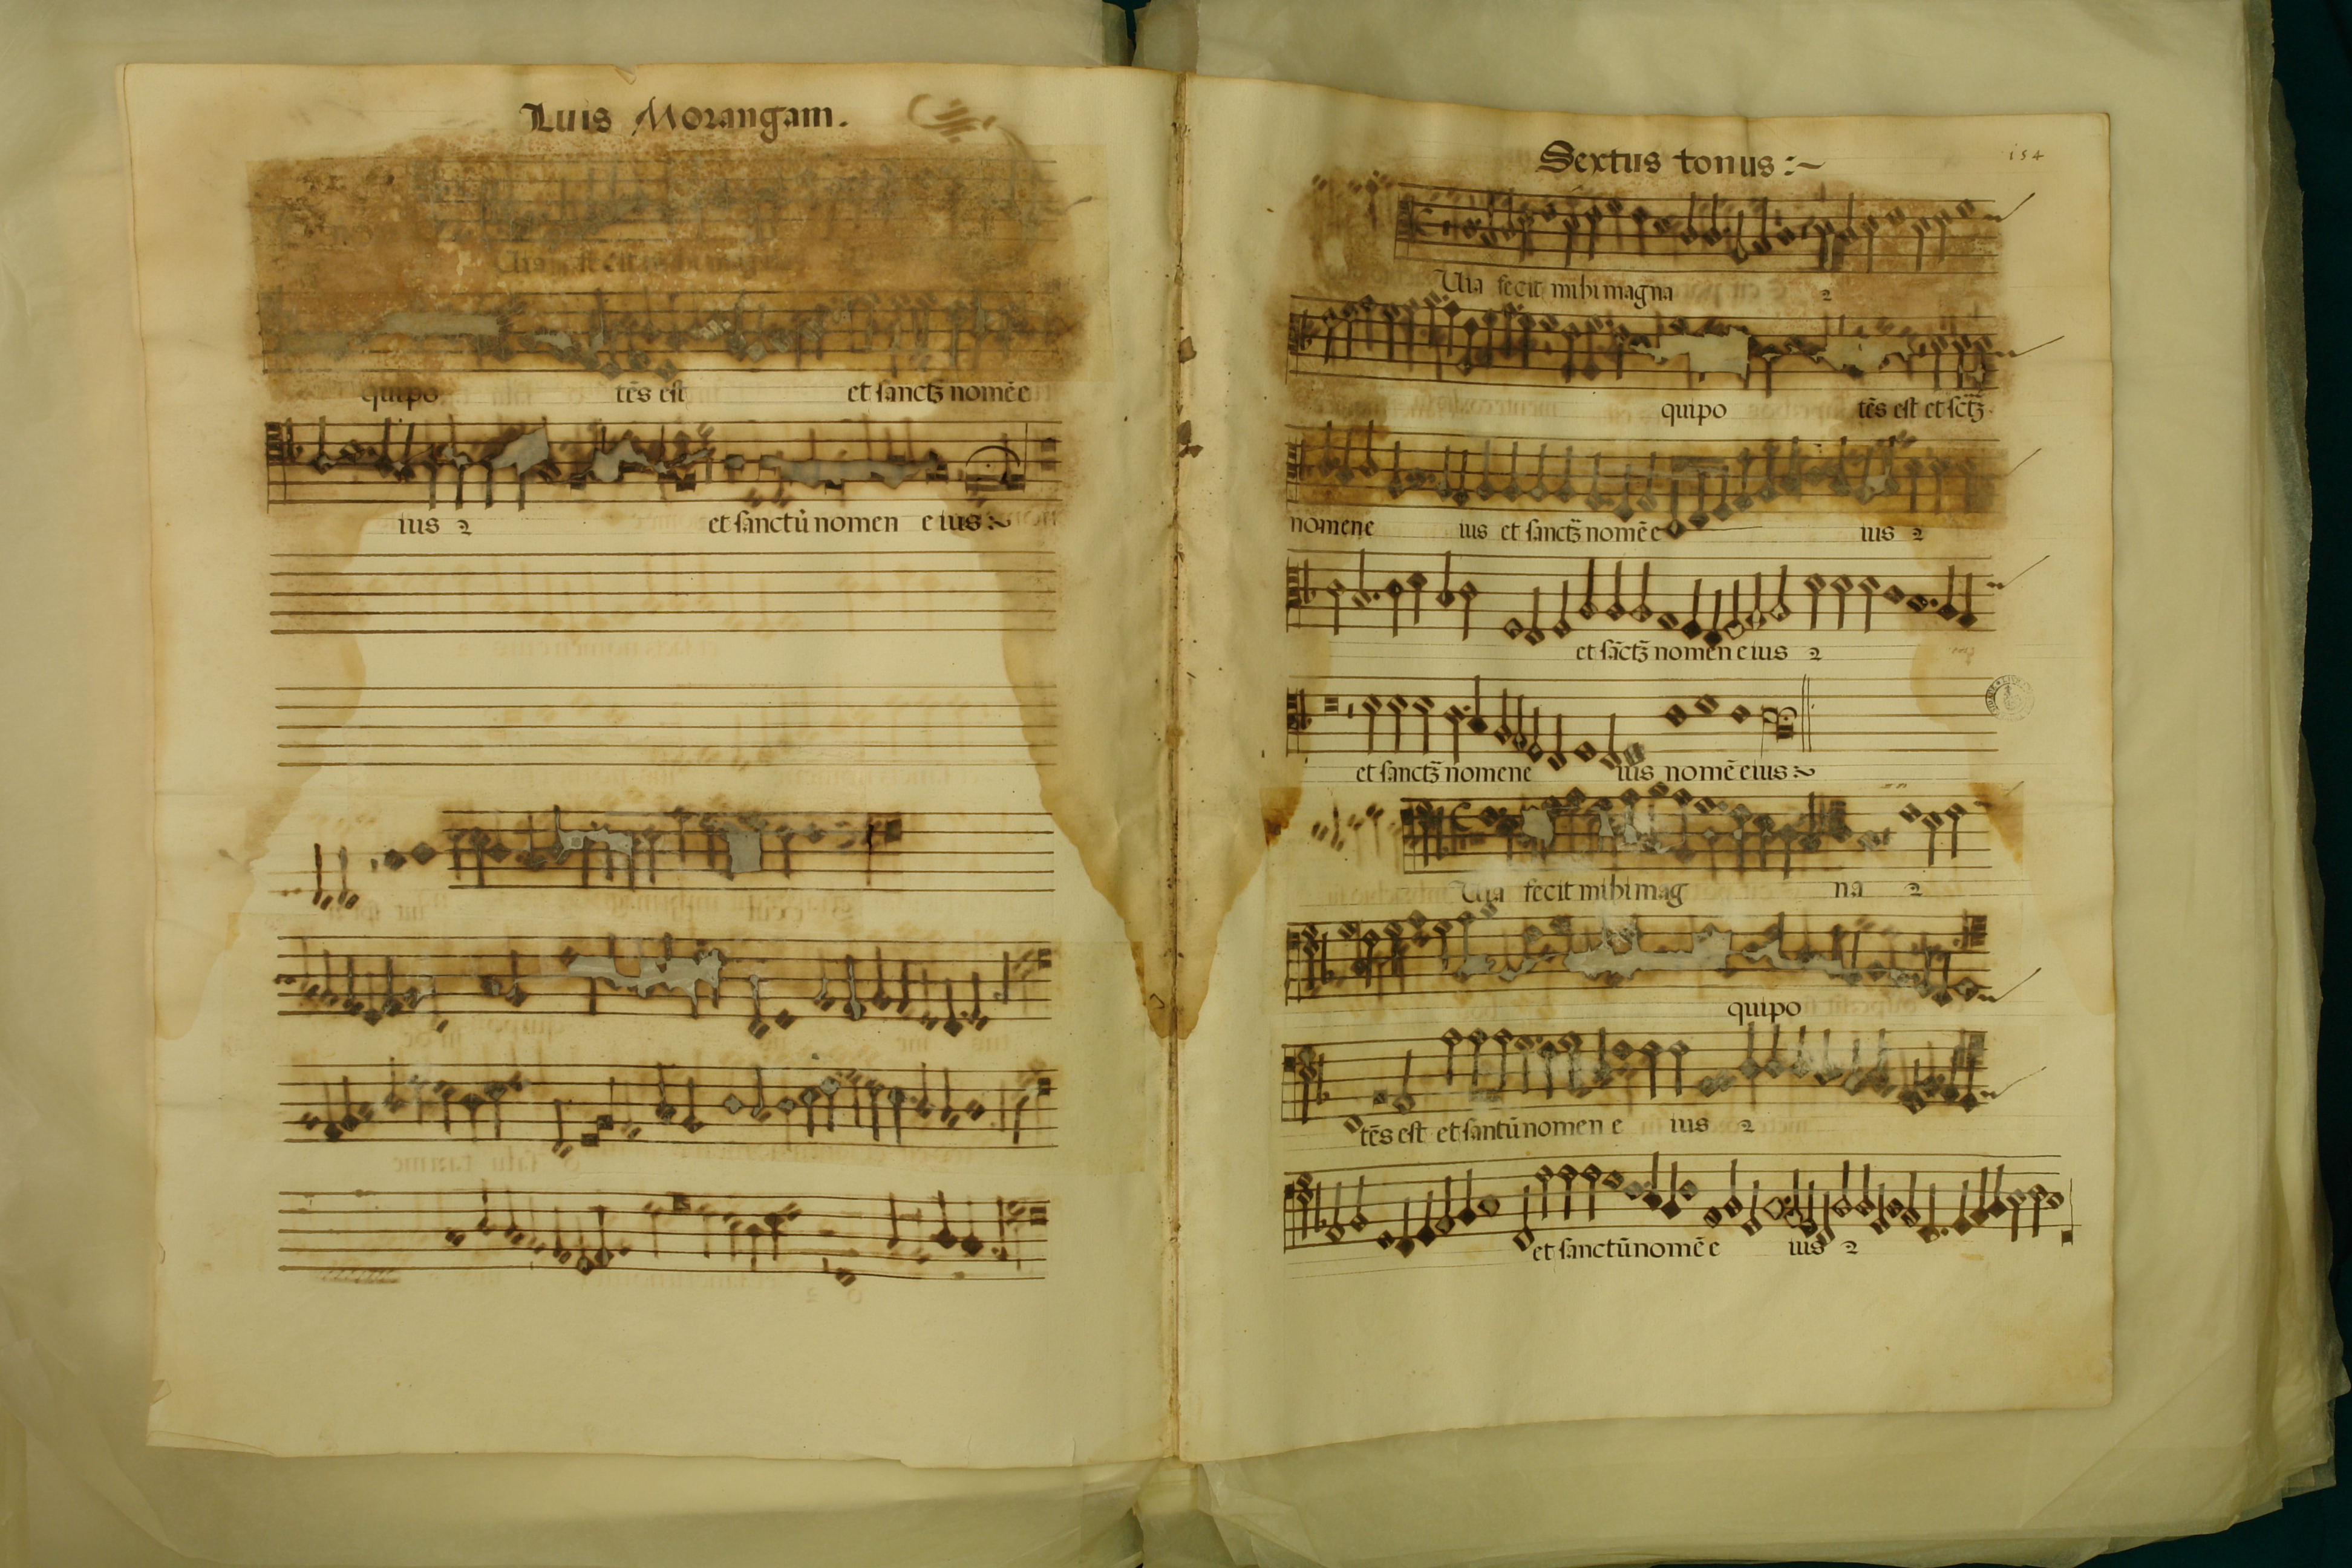 Luis Morangam.
quipo tēs est et sanctʒ nomē e
ius 2 et sanctū nomen e ius :~
Sextus tonus :~
154
Uia fecit mihi magna 2
quipo tēs est et sctʒ
nomen e ius et sanctʒ nomē e ius 2
et sāctʒ nomen eius 2
et sanctʒ nomen e ius nomē eius :~
Uia fecit mihi mag na 2
quipo
tēs est et santū nomen e ius 2
et sanctū nomē e ius 2